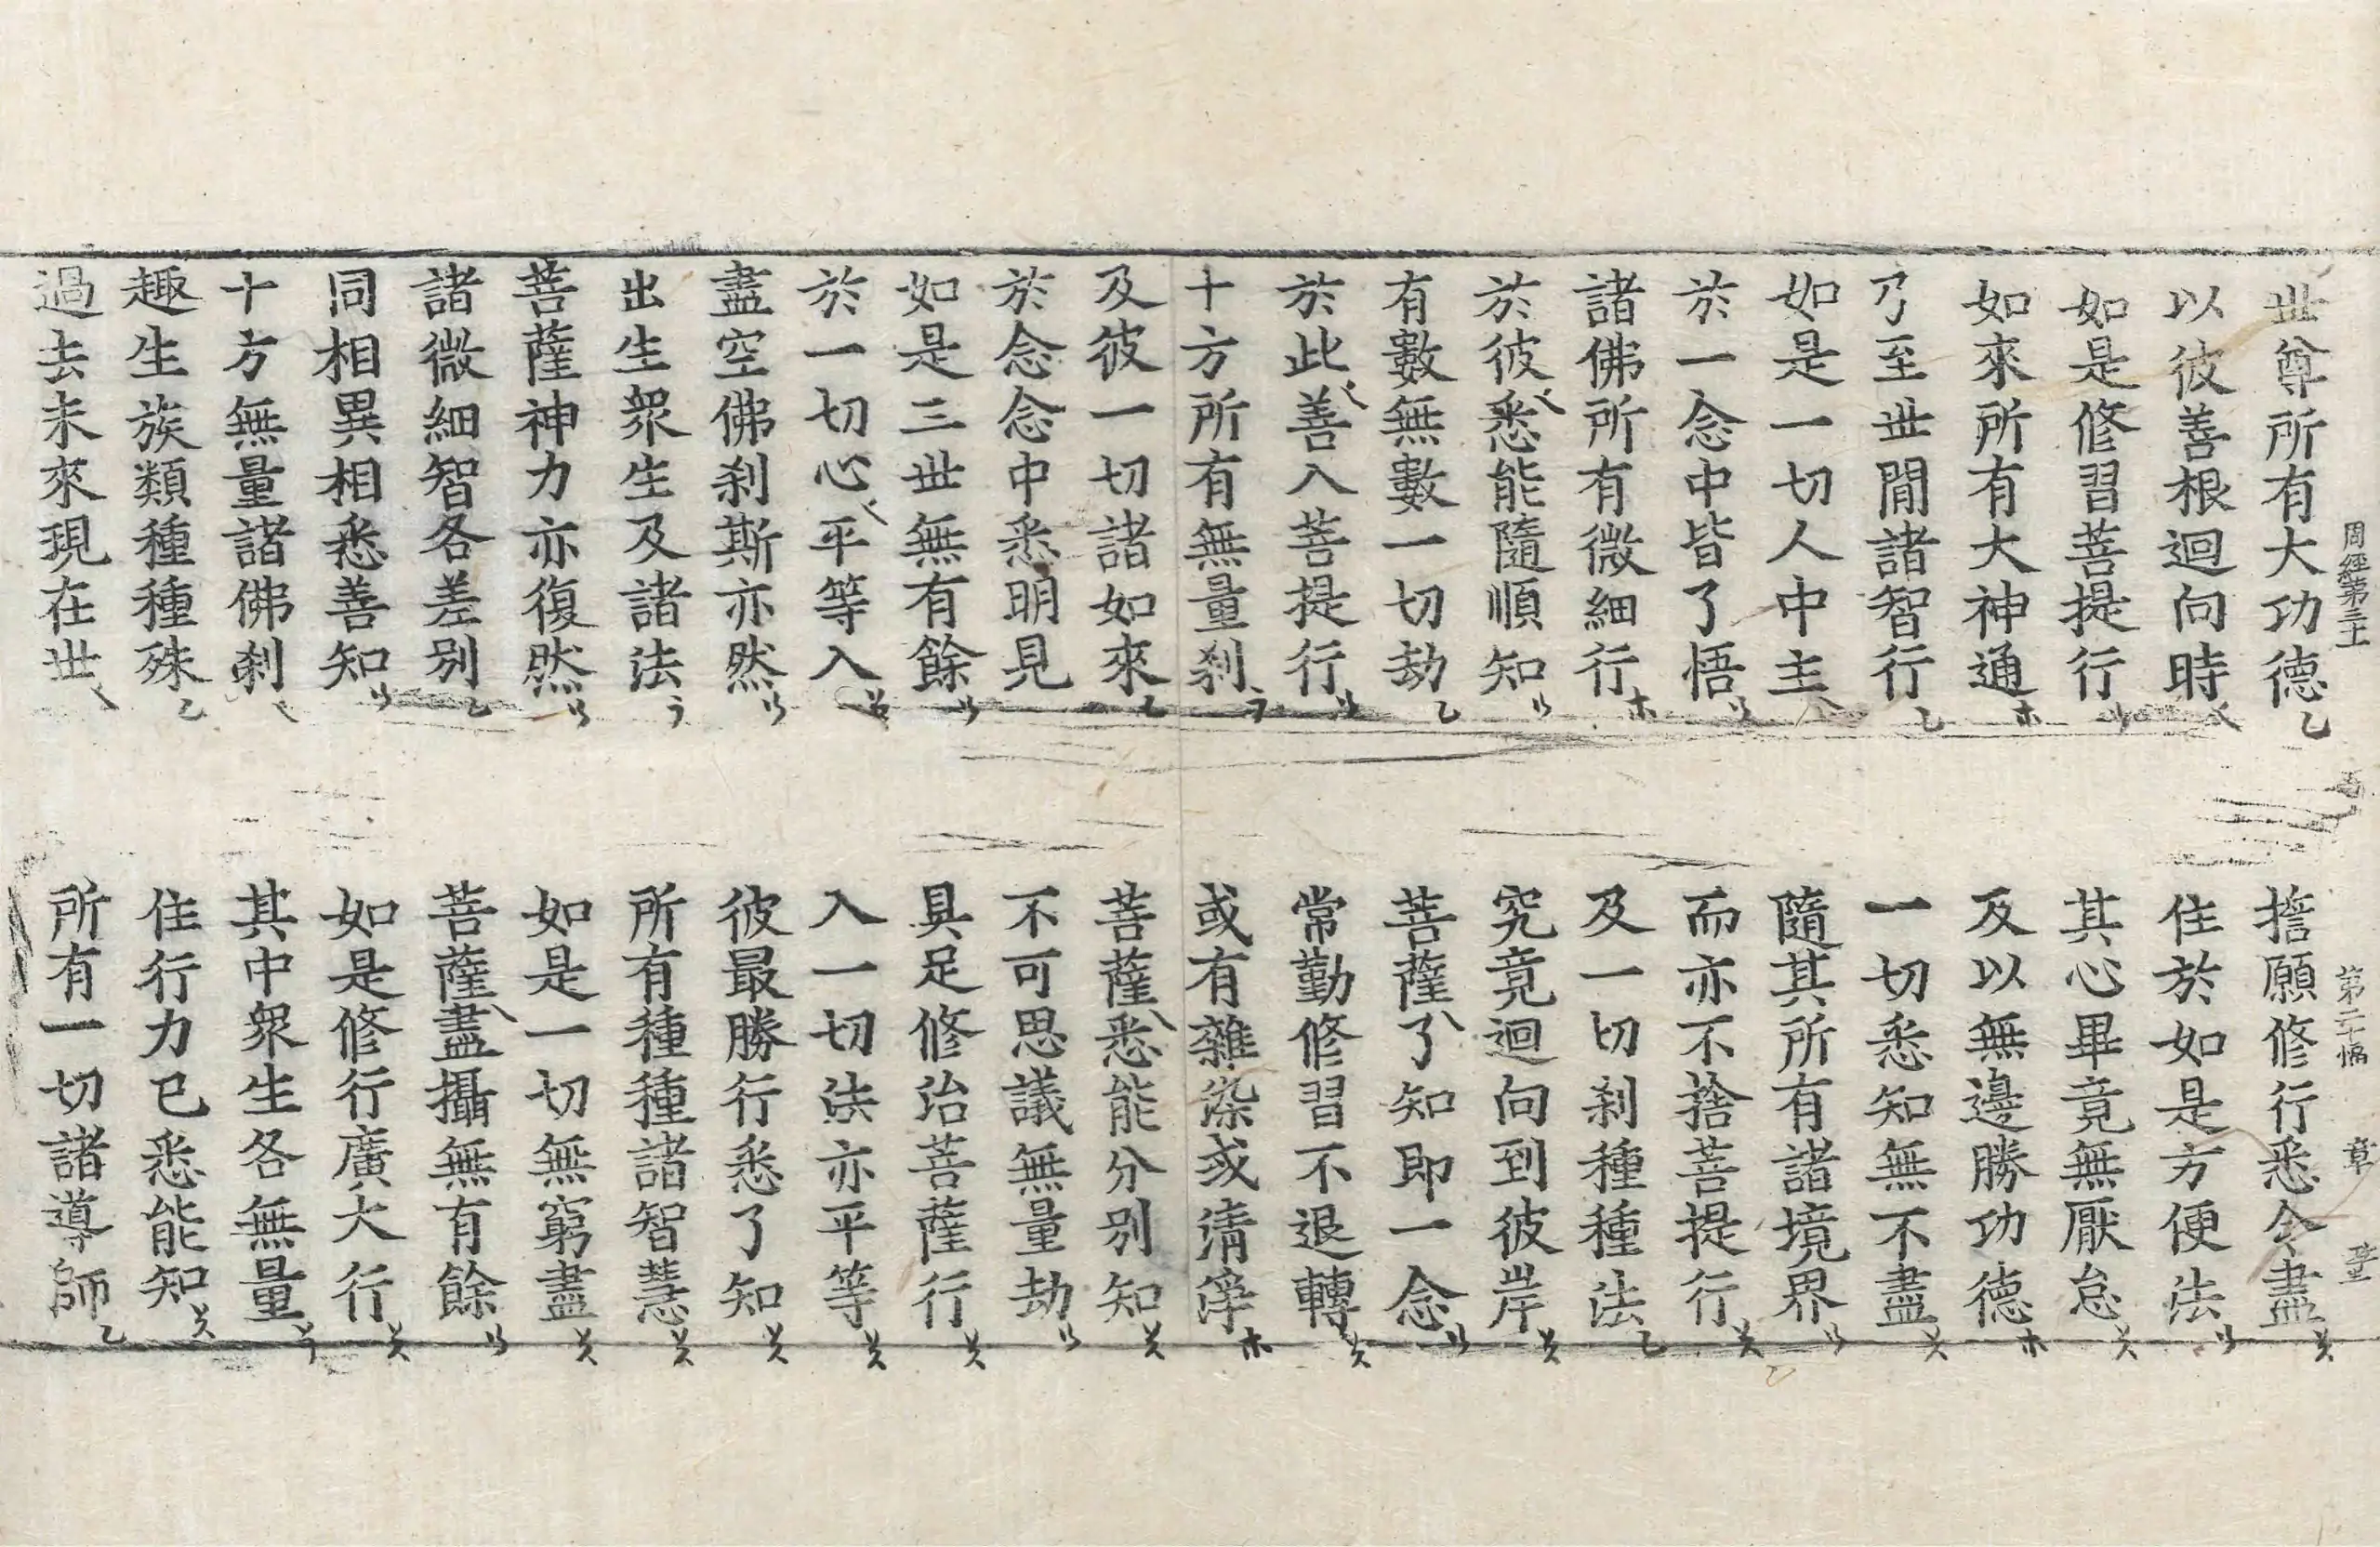 周經第三十 第二十幅 章
丗尊所有大功德 誓願修行悉令盡
以彼善根迴向時 住於如是方便法
如是修習菩提行 其心畢竟無厭怠
如來所有大神通 及以無邊勝功德
乃至丗閒諸智行 一切悉知無不盡
如是一切人中主 隨其所有諸境界
於一念中皆了悟 而亦不捨菩提行
諸佛所有微細行 及一切刹種種法
於彼悉能隨順知 究竟迴向到彼岸
有數無數一切劫 菩薩了知即一念
於此善入菩提行 常勤修習不退轉
十方所有無量刹 或有雜染或清淨
及彼一切諸如來 菩薩悉能分別知
於念念中悉明見 不可思議無量劫
如是三丗無有餘 具足修治菩薩行
於一切心平等入 入一切法亦平等
盡空佛刹斯亦然 彼最勝行悉了知
出生眾生及諸法 所有種種諸智慧
菩薩神力亦復然 如是一切無窮盡
諸微細智各差別 菩薩盡攝無有餘
同相異相悉善知 如是修行廣大行
十方無量諸佛刹 其中眾生各無量
趣生族類種種殊 住行力已悉能知
過去未來現在丗 所有一切諸導師